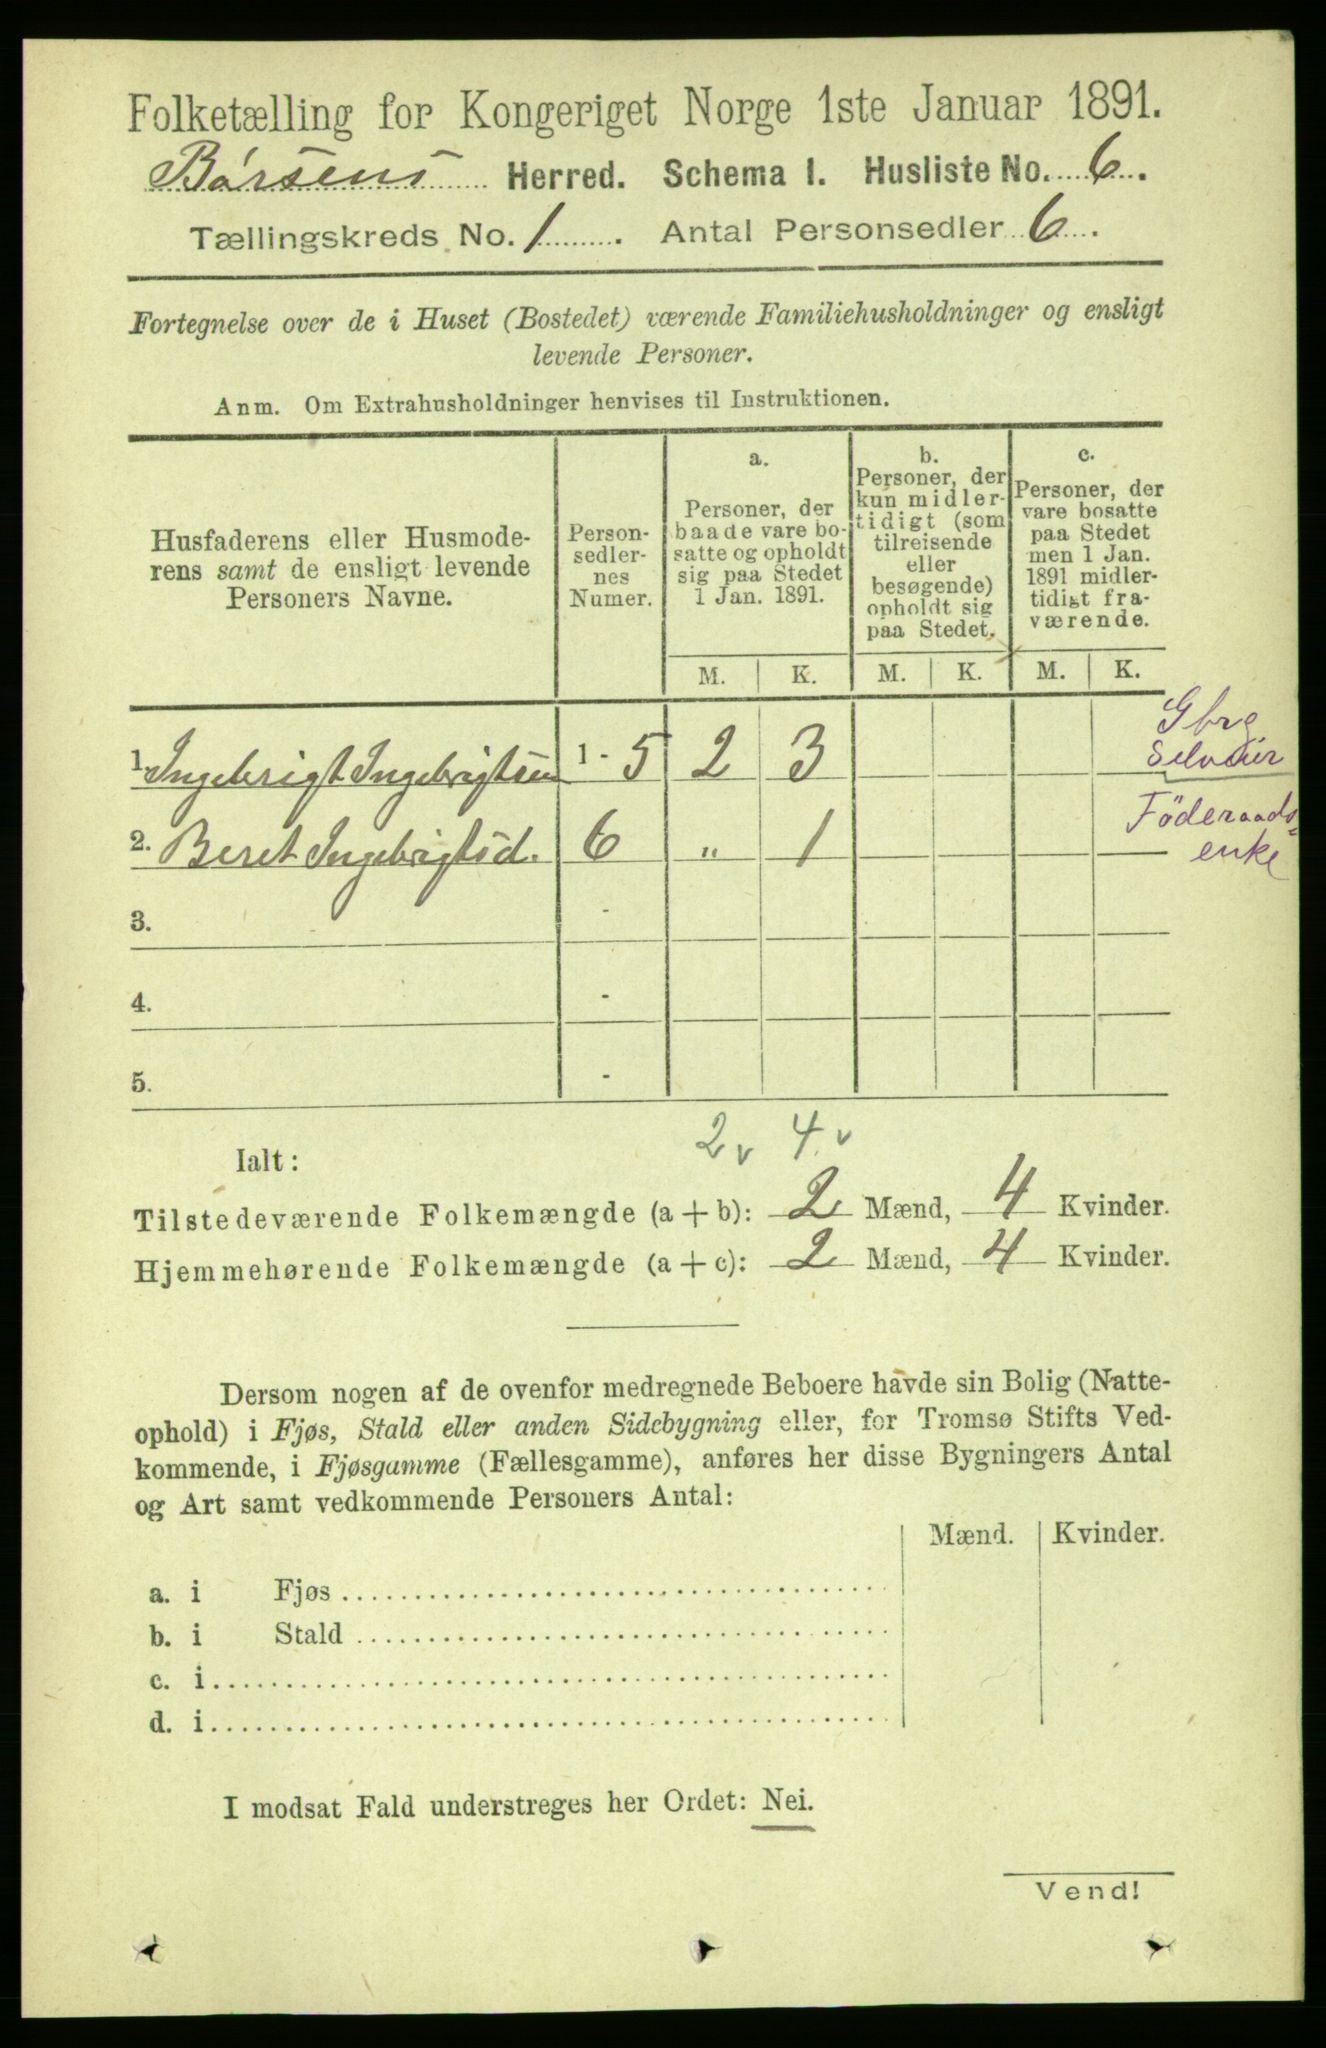 Folketælling for Kongeriget Norge 1ste Januar 1891.
Børsens Herred. Schema 1. Husliste No. 6.
Tællingskreds No. 1. Antal Personsedler 6.
Fortegnelse over de i Huset (Bostedet) værende Familiehusholdninger og ensligt
levende Personer.
Anm. Om Extrahusholdninger henvises til Instruktionen.
Husfaderens eller Husmode-
rens samt de ensligt levende
Personers Navne.
Person-
sedler-
nes
Numer.
a.
Personer, der
baade vare bo-
satte og opholdt
sig paa Stedet
1 Jan. 1891.
b.
Personer, der
kun midler-
tidigt (som
tilreisende
eller
besøgende)
opholdt sig
paa Stedet.
c.
Personer, der
vare bosatte
paa Stedet
men 1 Jan.
1891 midler-
tidigt fra-
værende.
M. K. M. K. M. K.
1. Ingebrigt Ingebrigtsen 1 - 5 2 3
Gbrg
Selveier
2. Beret Ingebrigtsd. 6 " 1
Föderaads=
enke
3. -
4. -
5. -
2 v 4. v
Ialt:
Tilstedeværende Folkemængde (a + b): 2 Mænd, 4 Kvinder.
Hjemmehørende Folkemængde (a + c): 2 Mænd, 4 Kvinder.
Dersom nogen af de ovenfor medregnede Beboere havde sin Bolig (Natte-
ophold) i Fjøs, Stald eller anden Sidebygning eller, for Tromsø Stifts Ved-
kommende, i Fjøsgamme (Fællesgamme), anføres her disse Bygningers Antal
og Art samt vedkommende Personers Antal:
Mænd. Kvinder.
a. i Fjøs
b. i Stald
c. i
d. i
I modsat Fald understreges her Ordet: Nei.
Vend!